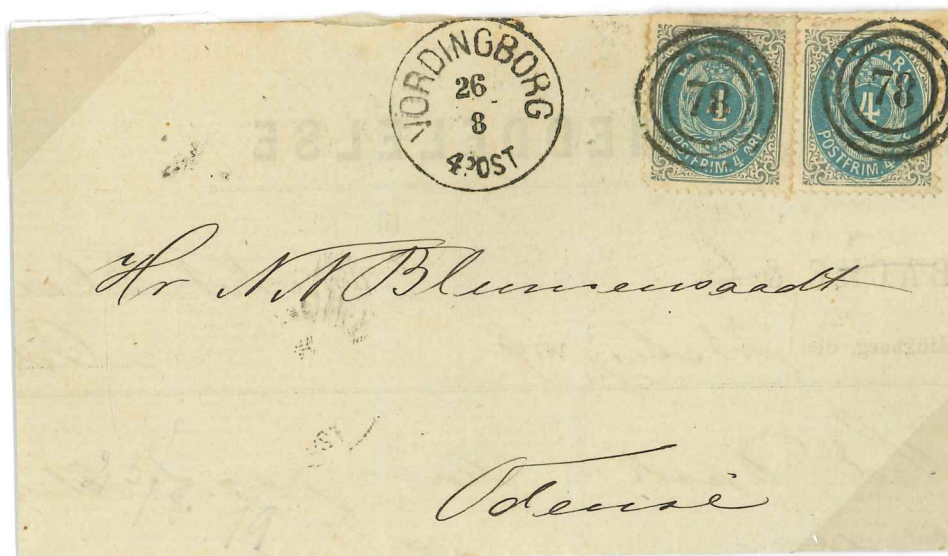 VORDINGBORG
26
8
4.POST
DANMARK
78
4
POSTFRIM. 4 ØRE
DANMARK
78
4
POSTFRIM. 4
Hr N N Blumensaadt
Odense